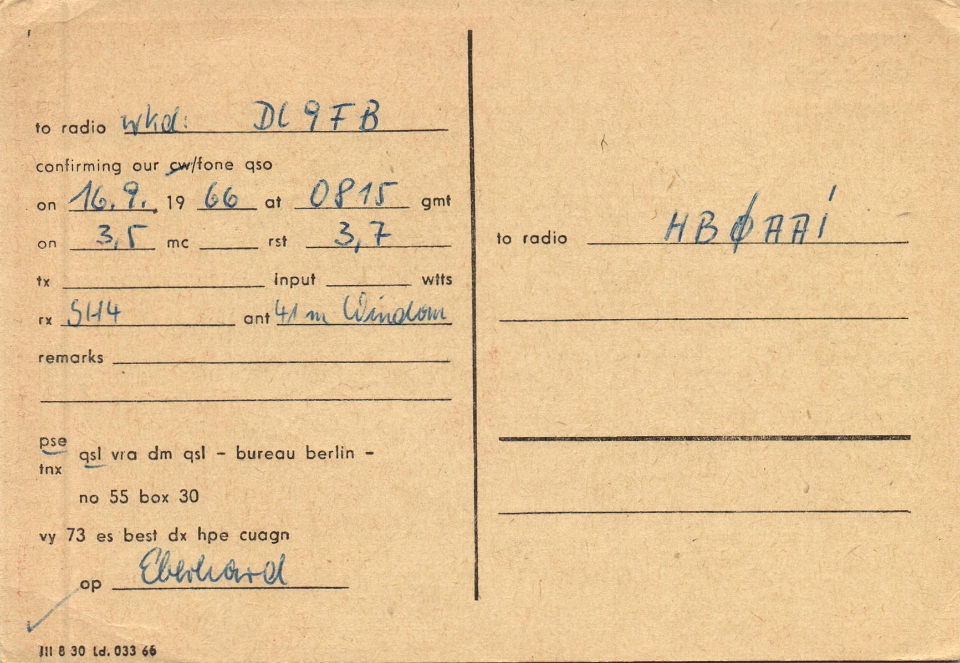 to radio wkd: DL9FB
confirming our cw/fone qso
on 16.9. 19 66 at 0815 gmt
on 3,5 mc rst 3,7
tx input wtts
rx SH4 ant 41 m Windom
remarks
pse
qsl vra dm qsl - bureau berlin -
tnx
no 55 box 30
vy 73 es best dx hpe cuagn
op Eberhard
III 8 30 Ld. 033 66
to radio HBØAAI